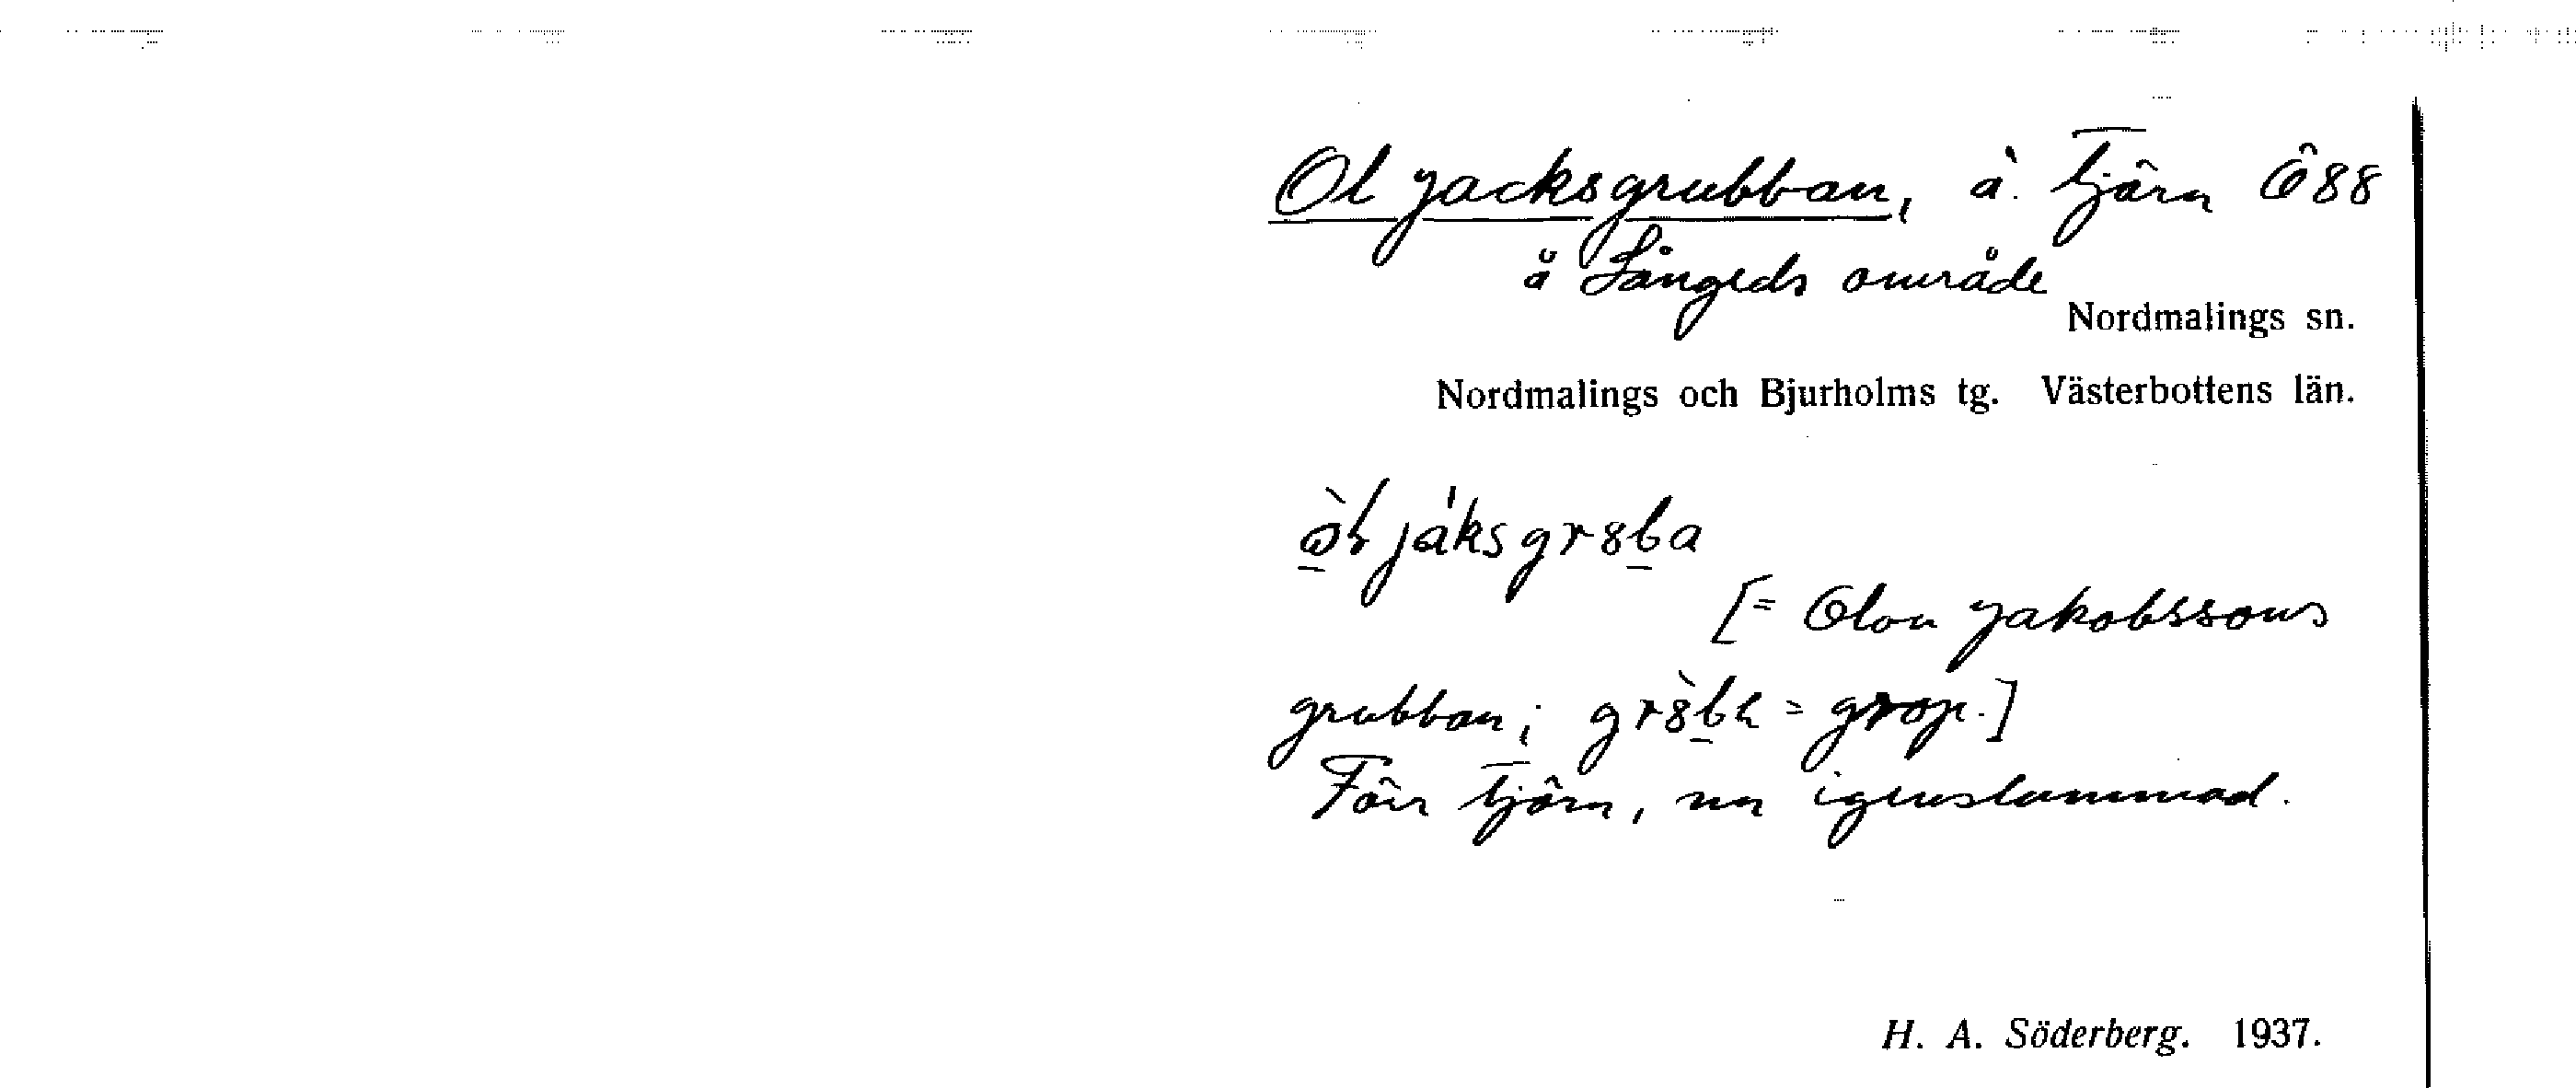 Ol Jacksgrubban, å. Tjärn Ö88
å Långeds område
Nordmalings sn.
Nordmalings och Bjurholms tg. Västerbottens län.
[= Olov Jakobssons
grubban; = grop.]
Förr tjärn, nu igenslammad.
H. A. Söderberg. 1937.